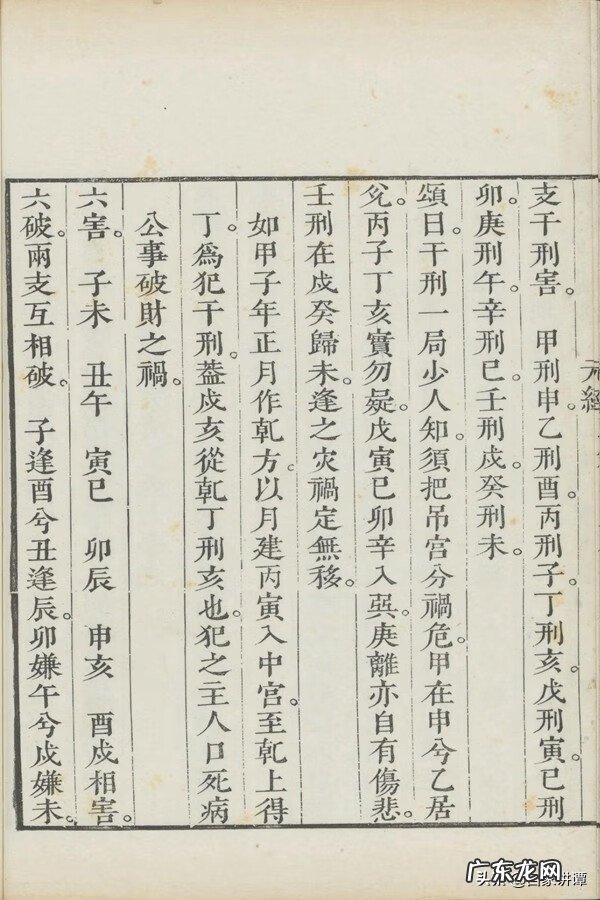 元經
支干刑害。　甲刑申。乙刑酉。丙刑子。丁刑亥。戊刑寅。己刑
卯。庚刑午。辛刑巳。壬刑戌。癸刑未。
頌曰。干刑一局少人知。須把吊宮分禍危。甲在申兮乙居
兌。丙子丁亥實勿疑。戊寅己卯辛入巽。庚離亦自有傷悲。
壬刑在戌癸歸未。逢之灾禍定無移。
如甲子年正月作乹方。以月建丙寅入中宮。至乹上得
丁。爲犯干刑。葢戌亥從乹丁刑亥也。犯之主人口死病
公事破財之禍。
六害。　子未　丑午　寅巳　卯辰　申亥　酉戌相害。
六破。兩支互相破。　子逢酉兮丑逢辰。卯嫌午兮戌嫌未。
广东龙网
头条 @百家讲谭